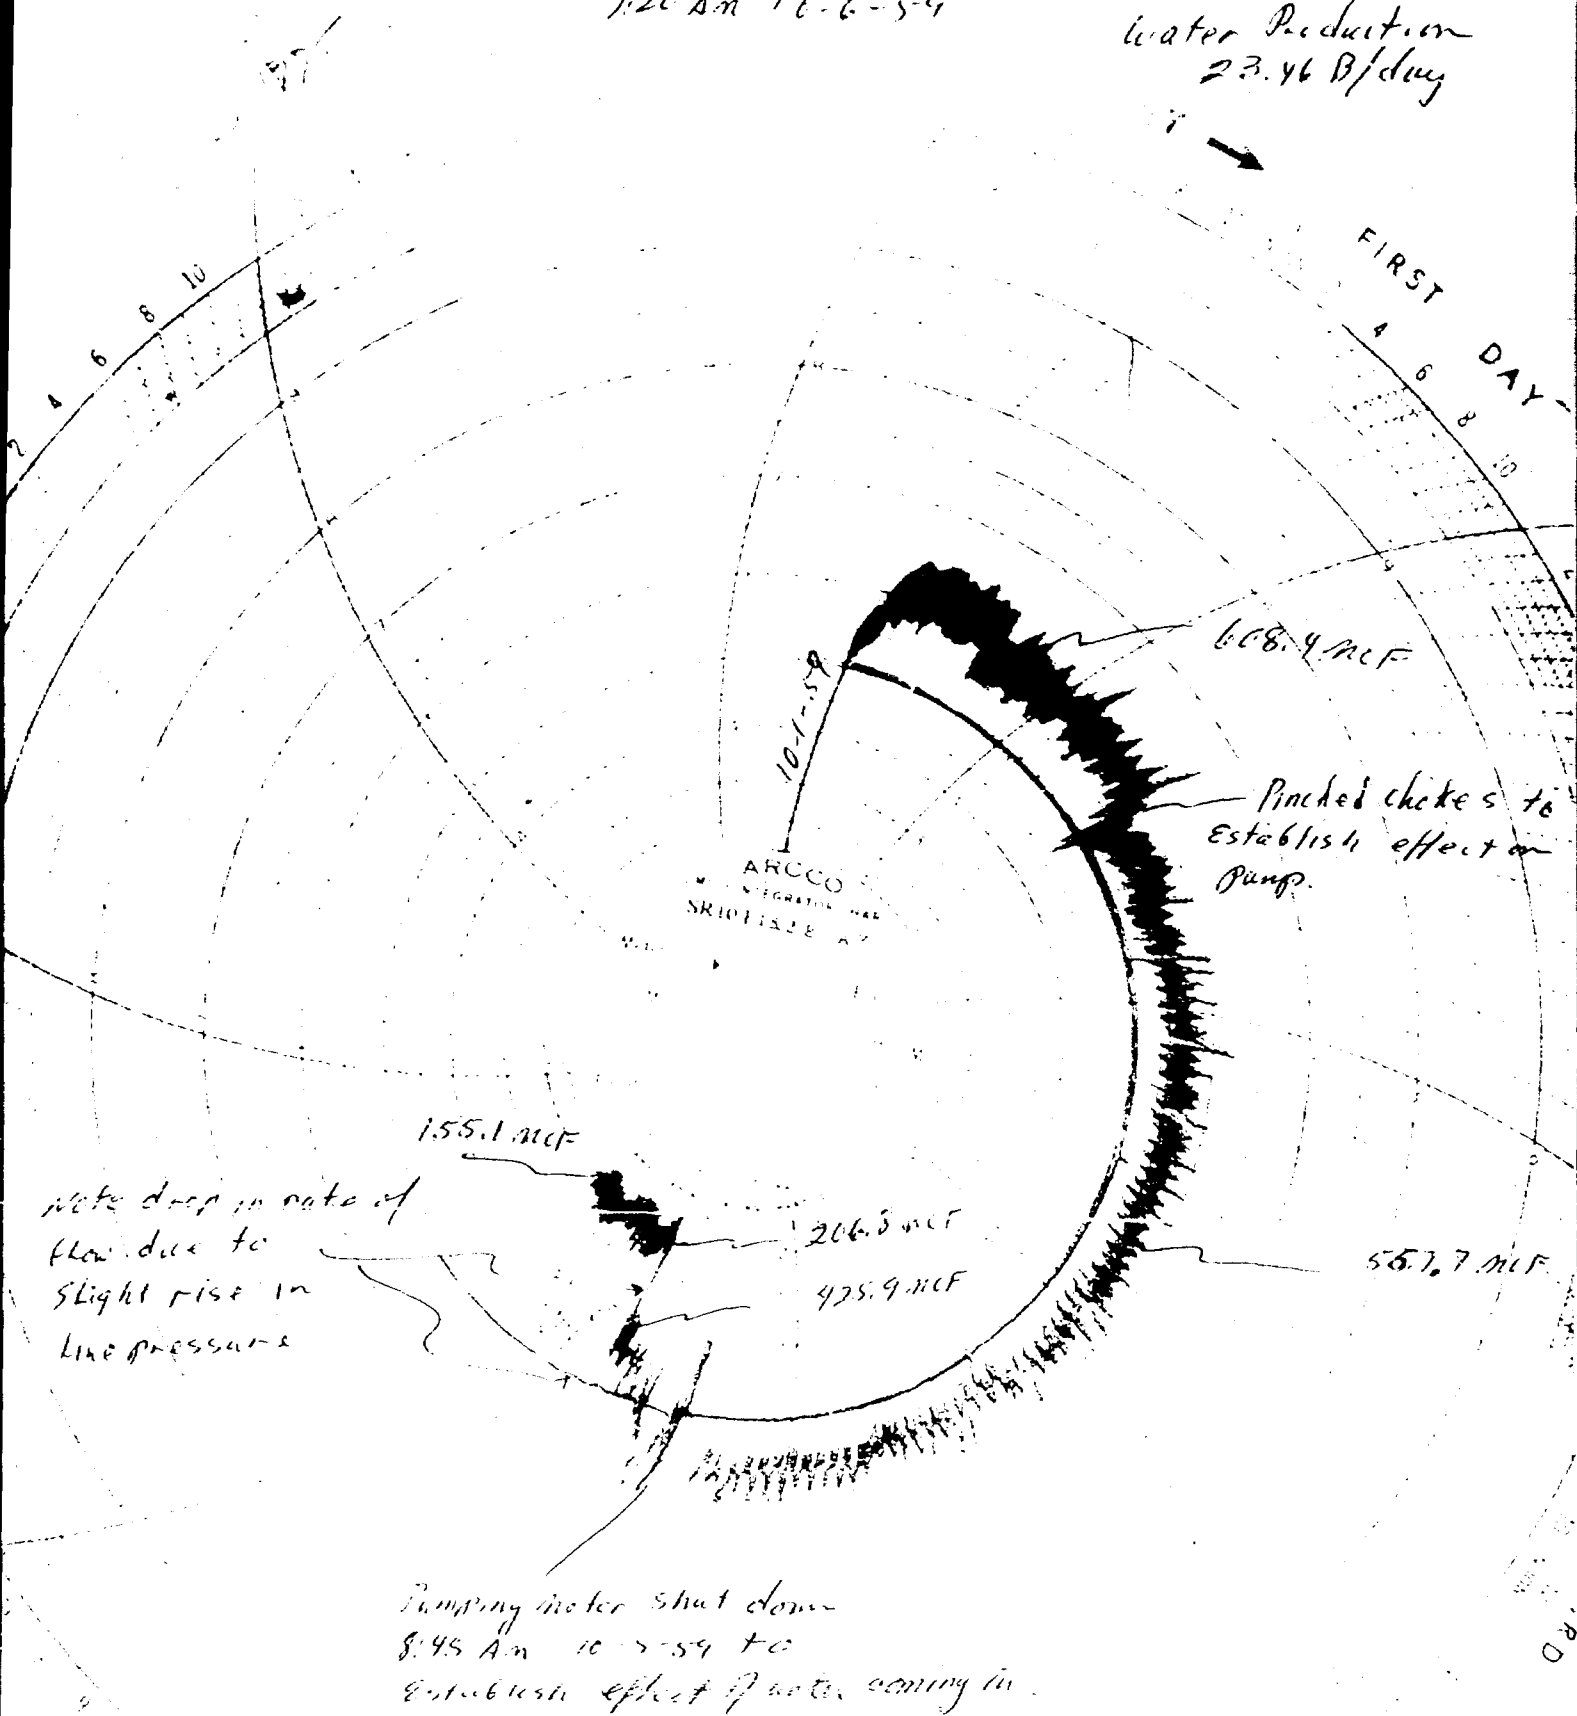 Water Production
23.46 B/day
FIRST DAY
10
8
6
4
2
4
6
8
10
608.4 MCF
10-1-59
Pinched chokes to
Establish effect on
Pump.
ARCCO
155.1 MCF
Note drop in rate of
flow due to
Slight rise in
Line pressure
425.9 MCF
557.7 MCF
Pumping motor shut down
8:45 Am
Establish effect of water coming in